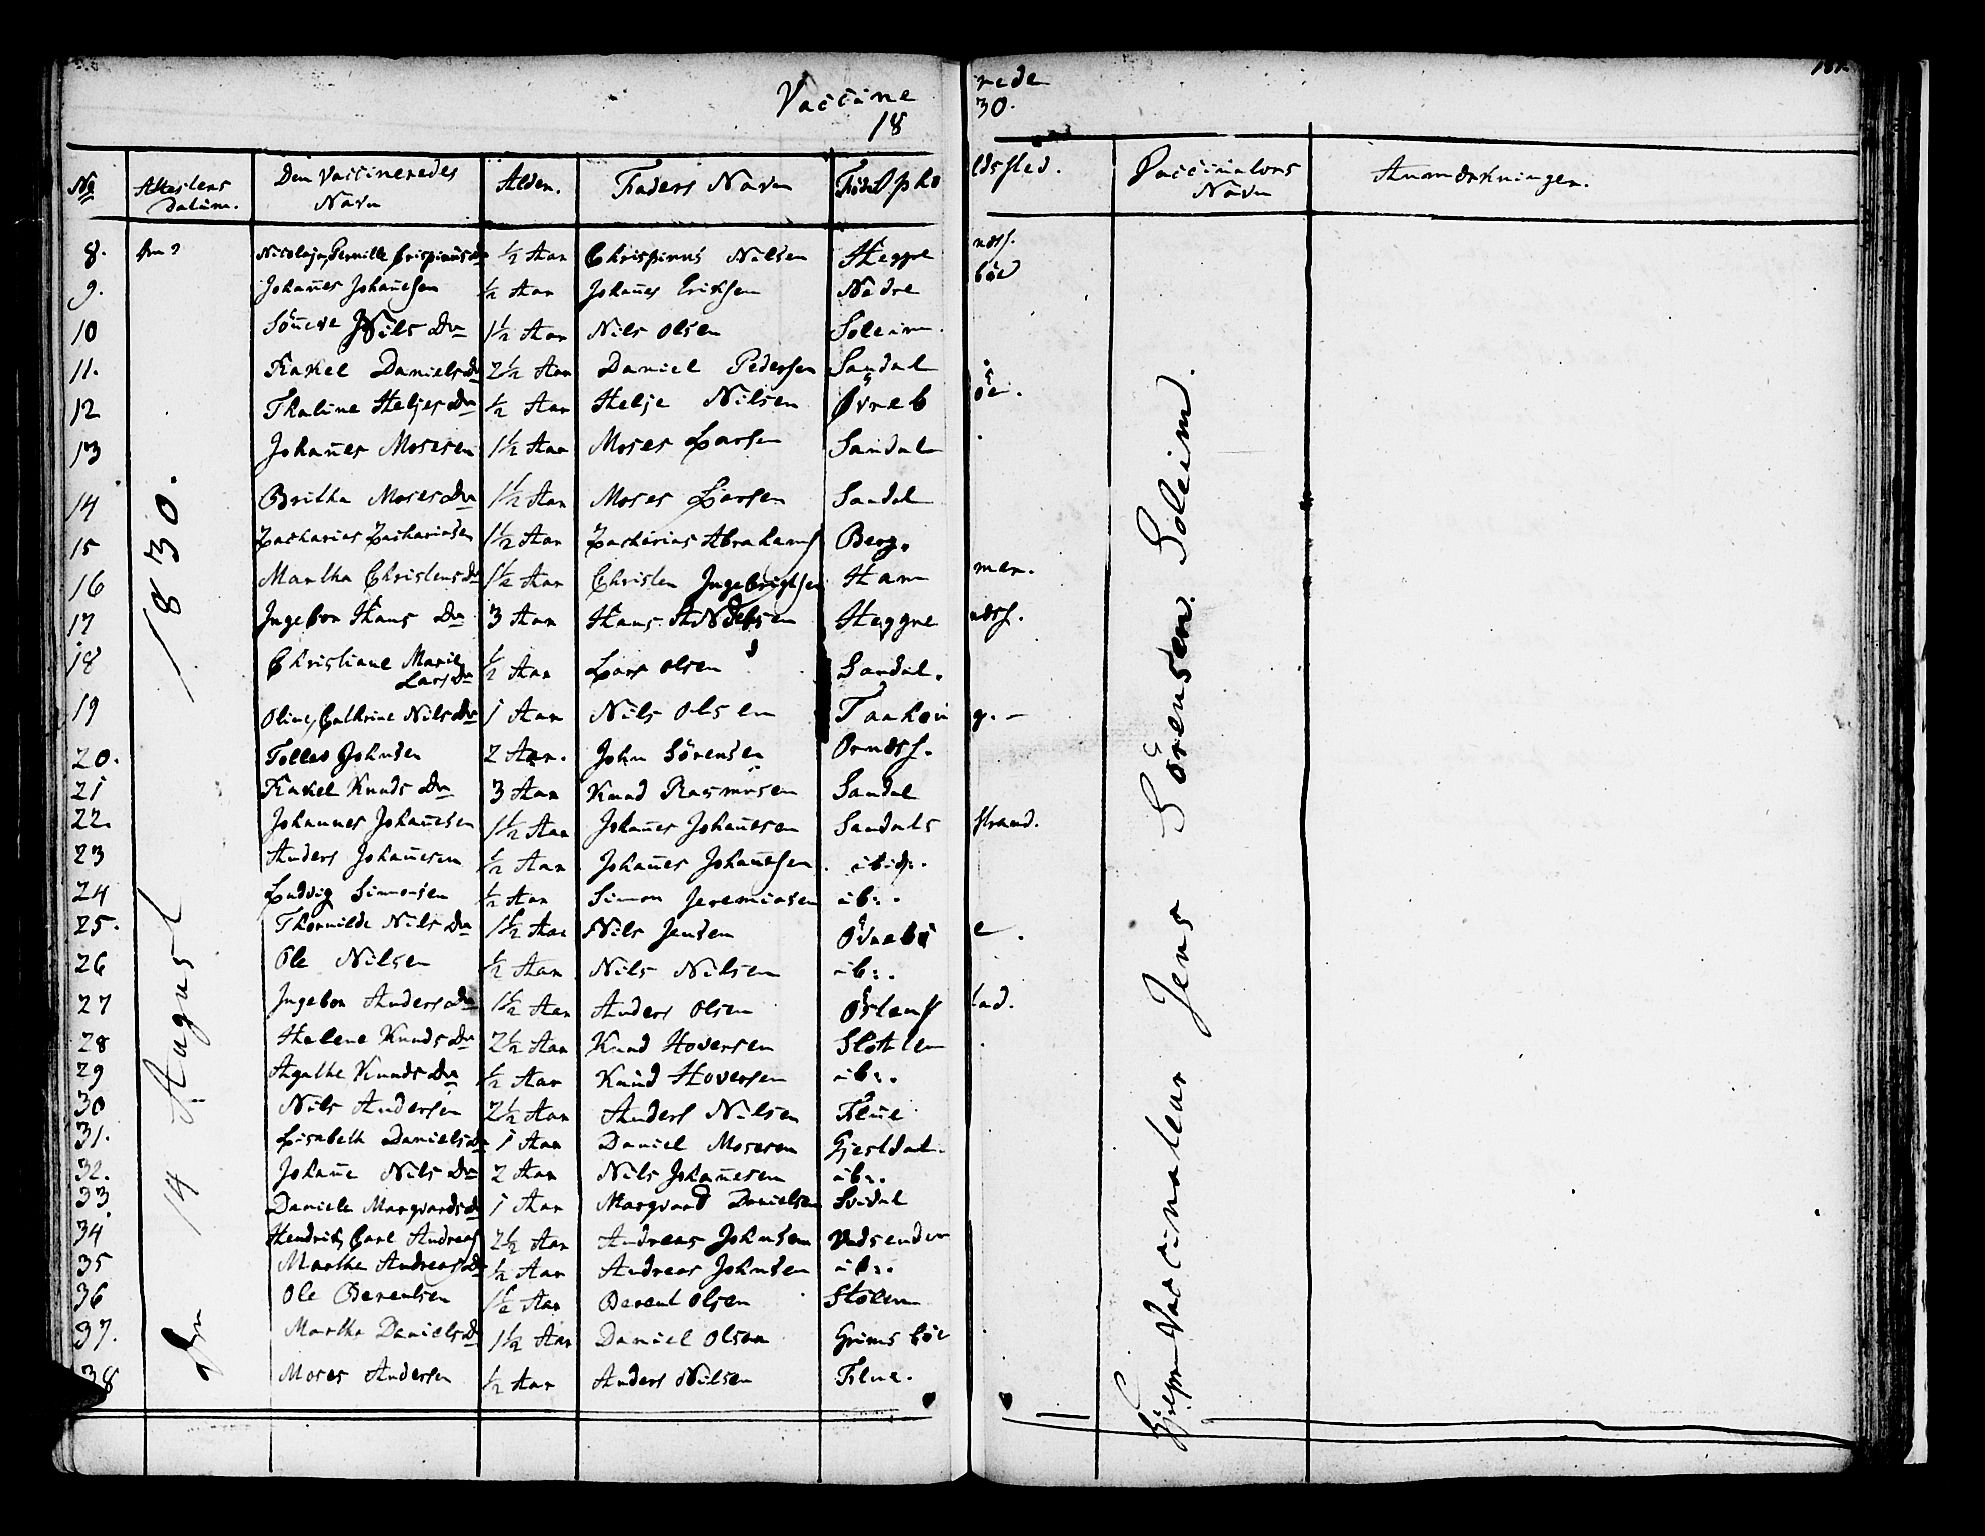 Vaccinerede
1830.
No Attestens Datum. Den Vaccineredes Navn Alder. Faders Navn Opholdssted. Vaccinateurs Navn Anmærkninger.
8. Nicolaja, Pernille Crispinus Dr ½ Aar Chrispinus Nilsen Heggrendss.
9. Johañes Johañesen ½ Aar Johañes Eriksen Nedreböe
10 Söñeve Nils Dr 1½ Aar Nils Olsen Soleim.
11. Rakel Daniels Dr 2½ Aar Daniel Pedersen Sandal
12 Thaline Heljes Dr ½ Aar Helje Nilsen Øvreböe.
13 Johañes Mosesen 1½ Aar Moses Larsen Sandal.
14 Britha Moses Dr 1½ Aar Moses Larsen Sandal
15 Zacharias Zachariasen 1½ Aar Zacharias Abrahams Berg.
16 Martha Christens Dr 1½ Aar Christen Ingebrigtsen Hammer.
17 Ingebor Hans Dr 3 Aar Hans Heggrendss.
18 Christiane Marie Lars Dr ½ Aar Lars Olsen Sandal.
19 Oline, Cathrine Nils Dr 1 Aar Nils Olsen
20. Tollev Johnsen 2 Aar. John Sörensen Orndss.
21 Rakel Knuds Dr 3 Aar Knud Rasmusen Sandal
22. Johannes Johañesen 1½ Aar Johañes Johañesen Sandalsstrand.
23 Anders Johañesen ½ Aar Johañes Johañesen ibid:.
24 Ludvig Simonsen ½ Aar Simon Jeremiasen ib:.
25. Thormilde Nils Dr 1½ Aar Nils Jensen Övreböe.
26 Ole Nilsen ½ Aar Nils Nilsen ib:.
27 Ingebor Anders Dr 1½ Aar Anders Olsen Östenstad.
28 Helene Knuds Dr 2½ Aar Knud Hoversen Slotten.
29 Agathe Knuds Dr ½ Aar Knud Hoversen ib:.
30 Nils Andersen 2½ Aar Anders Nilsen Flue
31. Lisabeth Daniels Dr 1 Aar Daniel Mosesen Gjestdal.
32. Johañe Nils Dr 2 Aar Nils Johañesen ib:.
33. Daniele Marqvards Dr 1 Aar Marqvard Danielsen Svidal
34 Hendrik, Carl Andreas 2½ Aar Andreas Johnsen Vadsenden
35 Marthe Andreas Dr ½ Aar Andreas Johnsen ib:.
36 Ole Berentsen 1½ Aar Berent Olsen Stölen
37. Martha Daniels Dr 1½ Aar Daniel Olsen Grimsböe
38 Moses Andersen ½ Aar Anders Nilsen Flue.
Den 14 August 1830.
Hjelpe Vaccinateur Jens Sörensen Soleim.